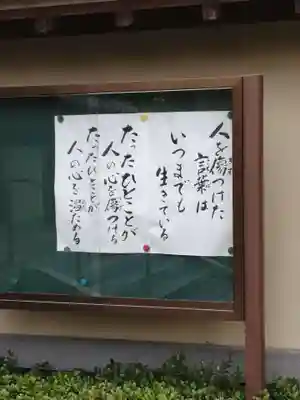 人を傷つけた
言葉は
いつまでも
生きている
たったひとことが
人の心を傷つける
たったひとことが
人の心を温める